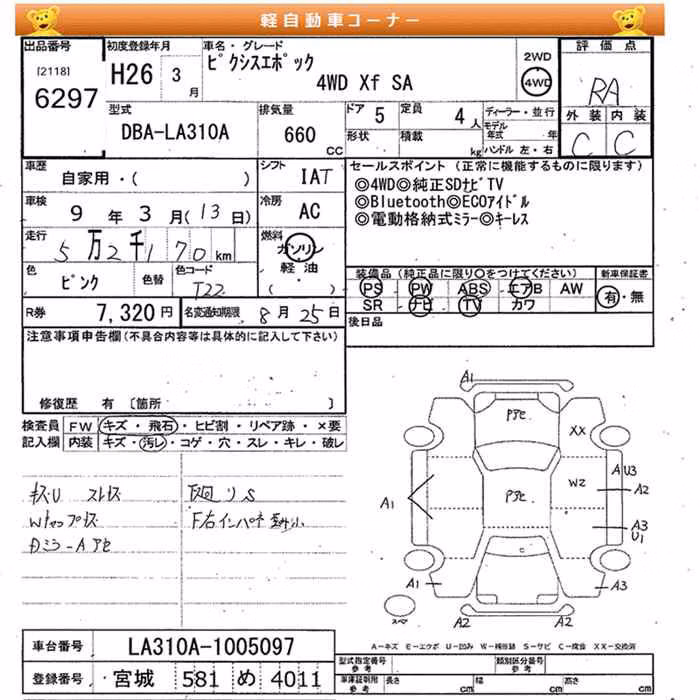 軽自動車コーナー
出品番号
[2118]
6297
初度登録年月
H26 3 月
車名・グレード
ピクシスエポック
4WD Xf SA
2WD
4WD
評価点
RA
外装 内装
C C
型式
DBA-LA310A
排気量
660 CC
ドア 5
形状
定員 4 人
積載 kg
ディーラー・並行
モデル年式 年
ハンドル 左・右
車歴
自家用・( )
シフト
IAT
車検
9 年 3 月(13 日)
冷房
AC
走行
5 万 2 千 170 km
燃料
ガソリン
軽油
( )
色
ピンク
色替
色コード
T22
セールスポイント (正常に機能するものに限ります)
◎4WD◎純正SDナビTV
◎Bluetooth◎ECOアイドル
◎電動格納式ミラー◎キーレス
装備品 (純正品に限り○をつけてください)
PS PW ABS エアB AW
SR ナビ TV カワ
新車保証書
有・無
後日品
R券 7,320 円
名変通知期限 8 月 25 日
注意事項申告欄 (不具合内容等は具体的に記入して下さい)
修復歴 有 〔箇所 〕
検査員
記入欄
FW キズ・飛石・ヒビ割・リペア跡・×要
内装 キズ・汚レ・コゲ・穴・スレ・キレ・破レ
キズU
Wキャップキズ
Dミラ-A アセ
廻りS
F右インパネ
A1
アセ
XX
アセ
W2
A U3
A2
A1
A3
U1
A1
A3
A2
A2
スペア
A-キズ E-エクボ U-凹み W-補修跡 S-サビ C-腐食 XX-交換済
車台番号 LA310A-1005097
登録番号 宮城 581 め 4011
型式指定番号 参考
類別区分番号 参考
車庫証明附 参考
長さ cm
幅 cm
高さ cm